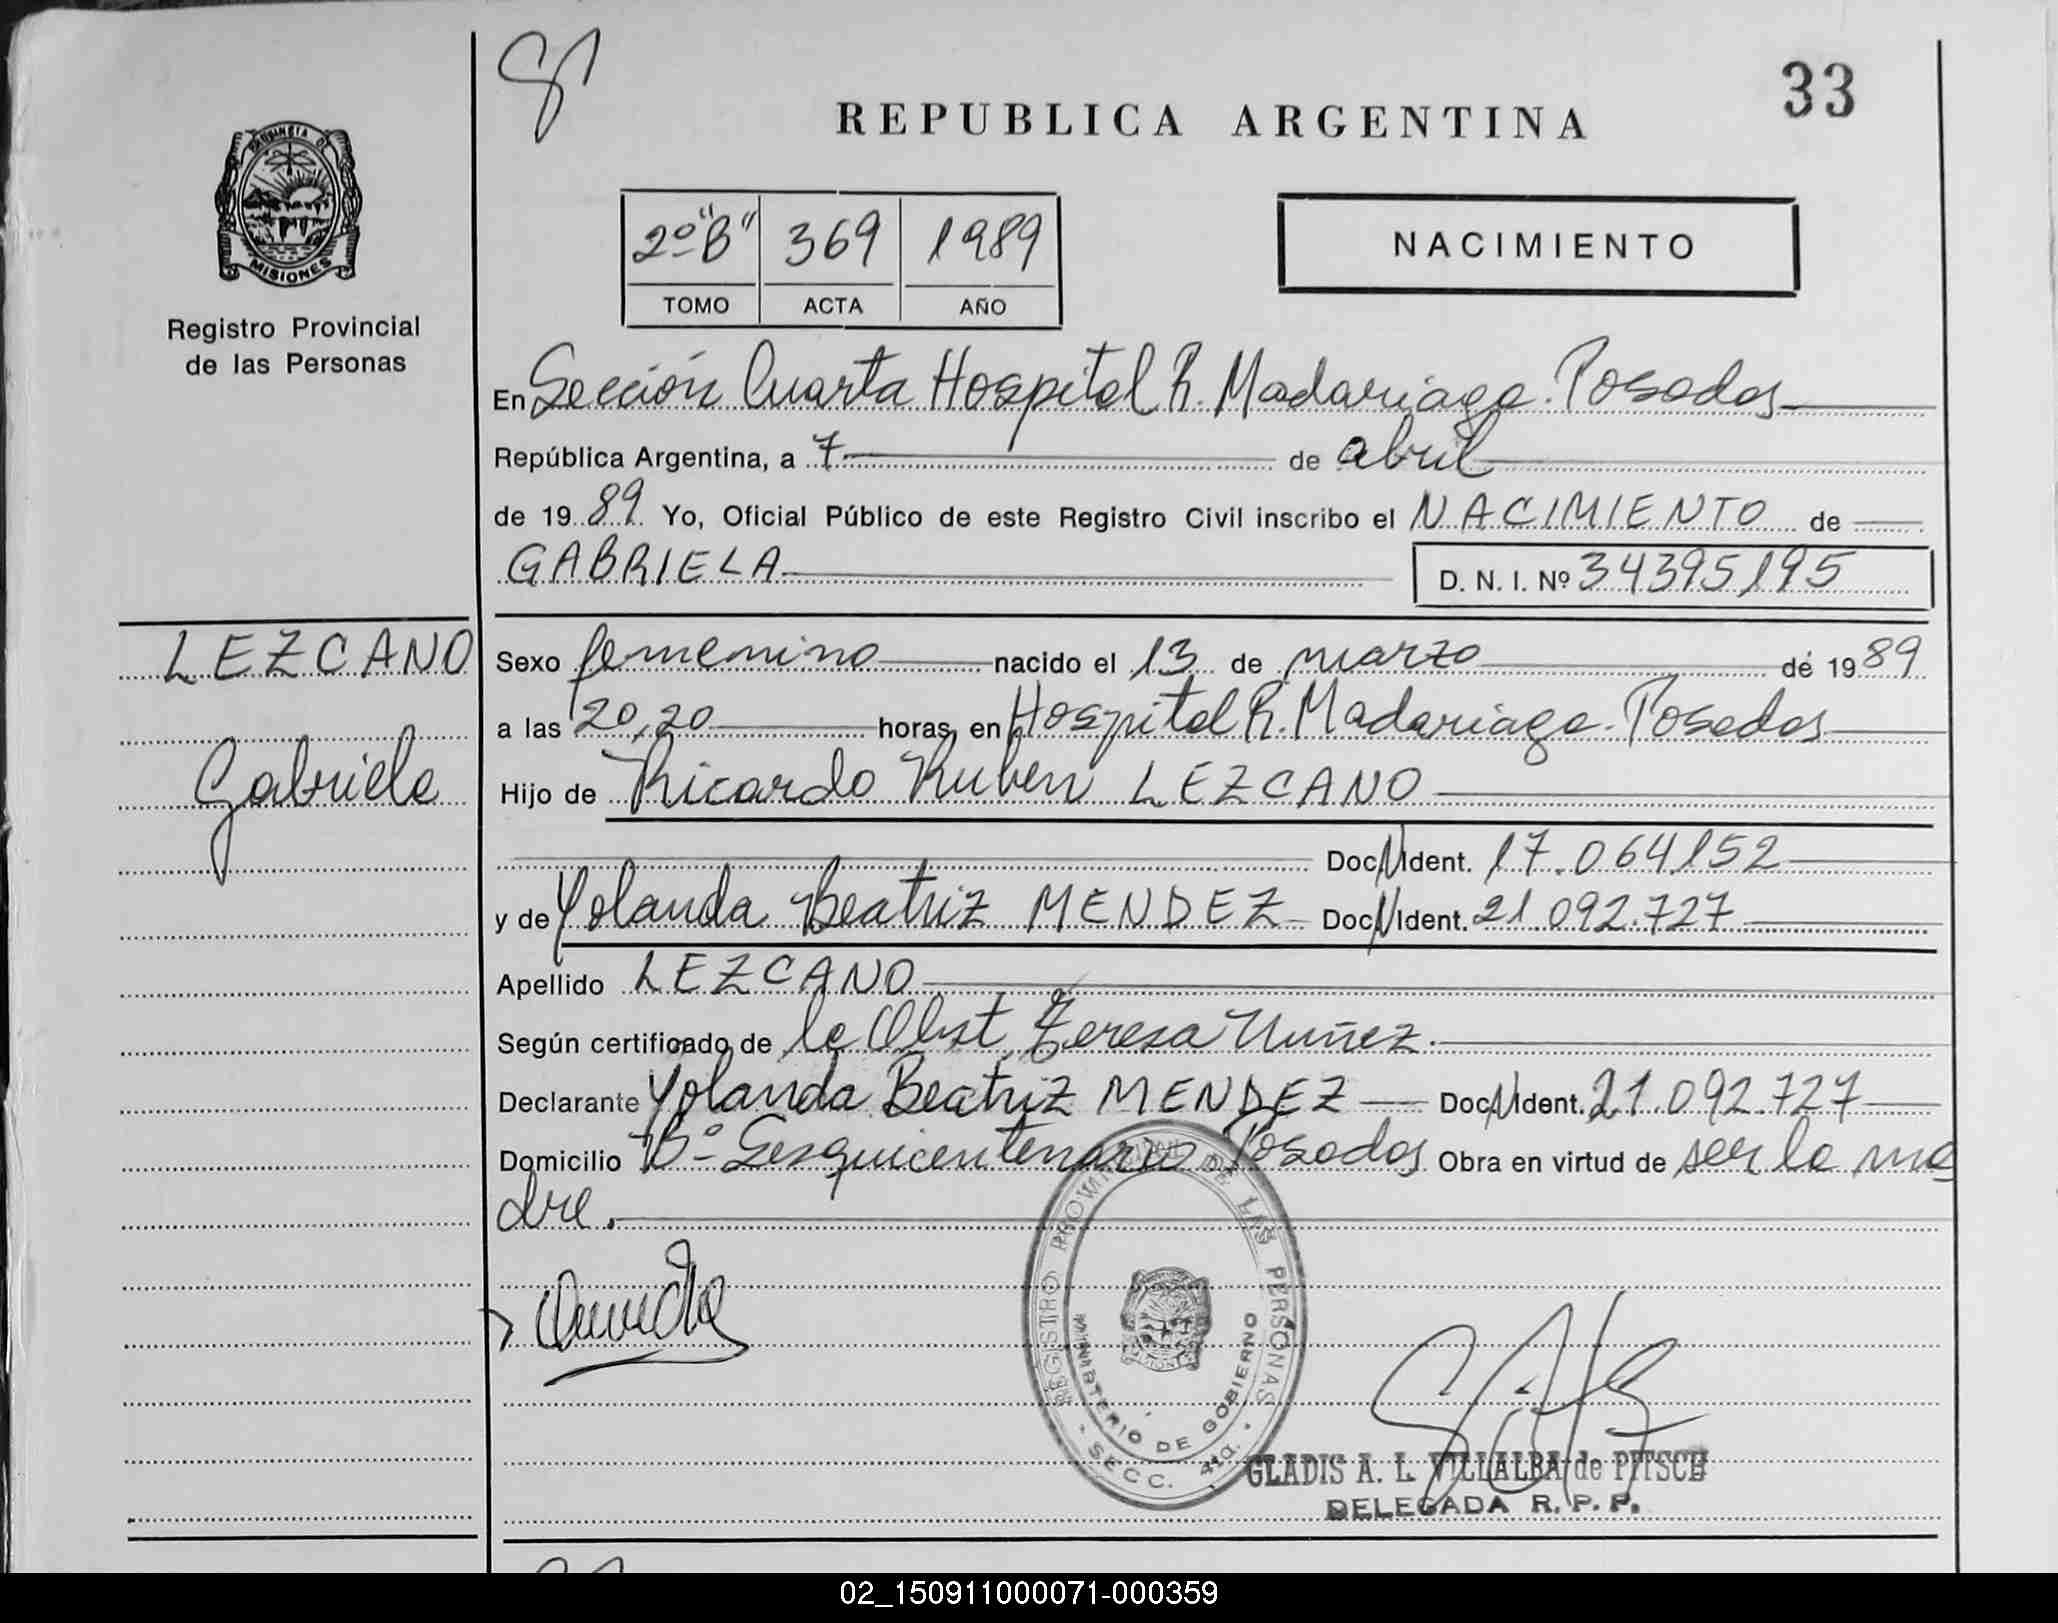 33
REPUBLICA ARGENTINA
PROVINCIA DE
MISIONES
2º "B" 369 1989
TOMO ACTA AÑO
NACIMIENTO
Registro Provincial
de las Personas
En Sección Cuarta Hospital R. Madariaga. Posadas
República Argentina, a 7 de abril
de 1989 Yo, Oficial Público de este Registro Civil inscribo el NACIMIENTO de
GABRIELA D. N. I. Nº 34395195
LEZCANO
Gabriela
Sexo femenino nacido el 13 de marzo de 1989
a las 20,20 horas, en Hospital R. Madariaga. Posadas
Hijo de Ricardo Ruben LEZCANO
Doc. N Ident. 17.064152
y de Yolanda Beatriz MENDEZ Doc. N Ident. 21.092.727
Apellido LEZCANO
Según certificado de la Obst. Teresa Nuñez.
Declarante Yolanda Beatriz MENDEZ Doc. N Ident. 21.092.727
Domicilio Bº Sesquicentenario Posadas Obra en virtud de ser la ma
dre.
REGISTRO PROVINCIAL DE LAS PERSONAS
MINISTERIO DE GOBIERNO
SECC. 4ta.
GLADIS A. L. VILLALBA de PITSCH
DELEGADA R. P. P.
02_150911000071-000359